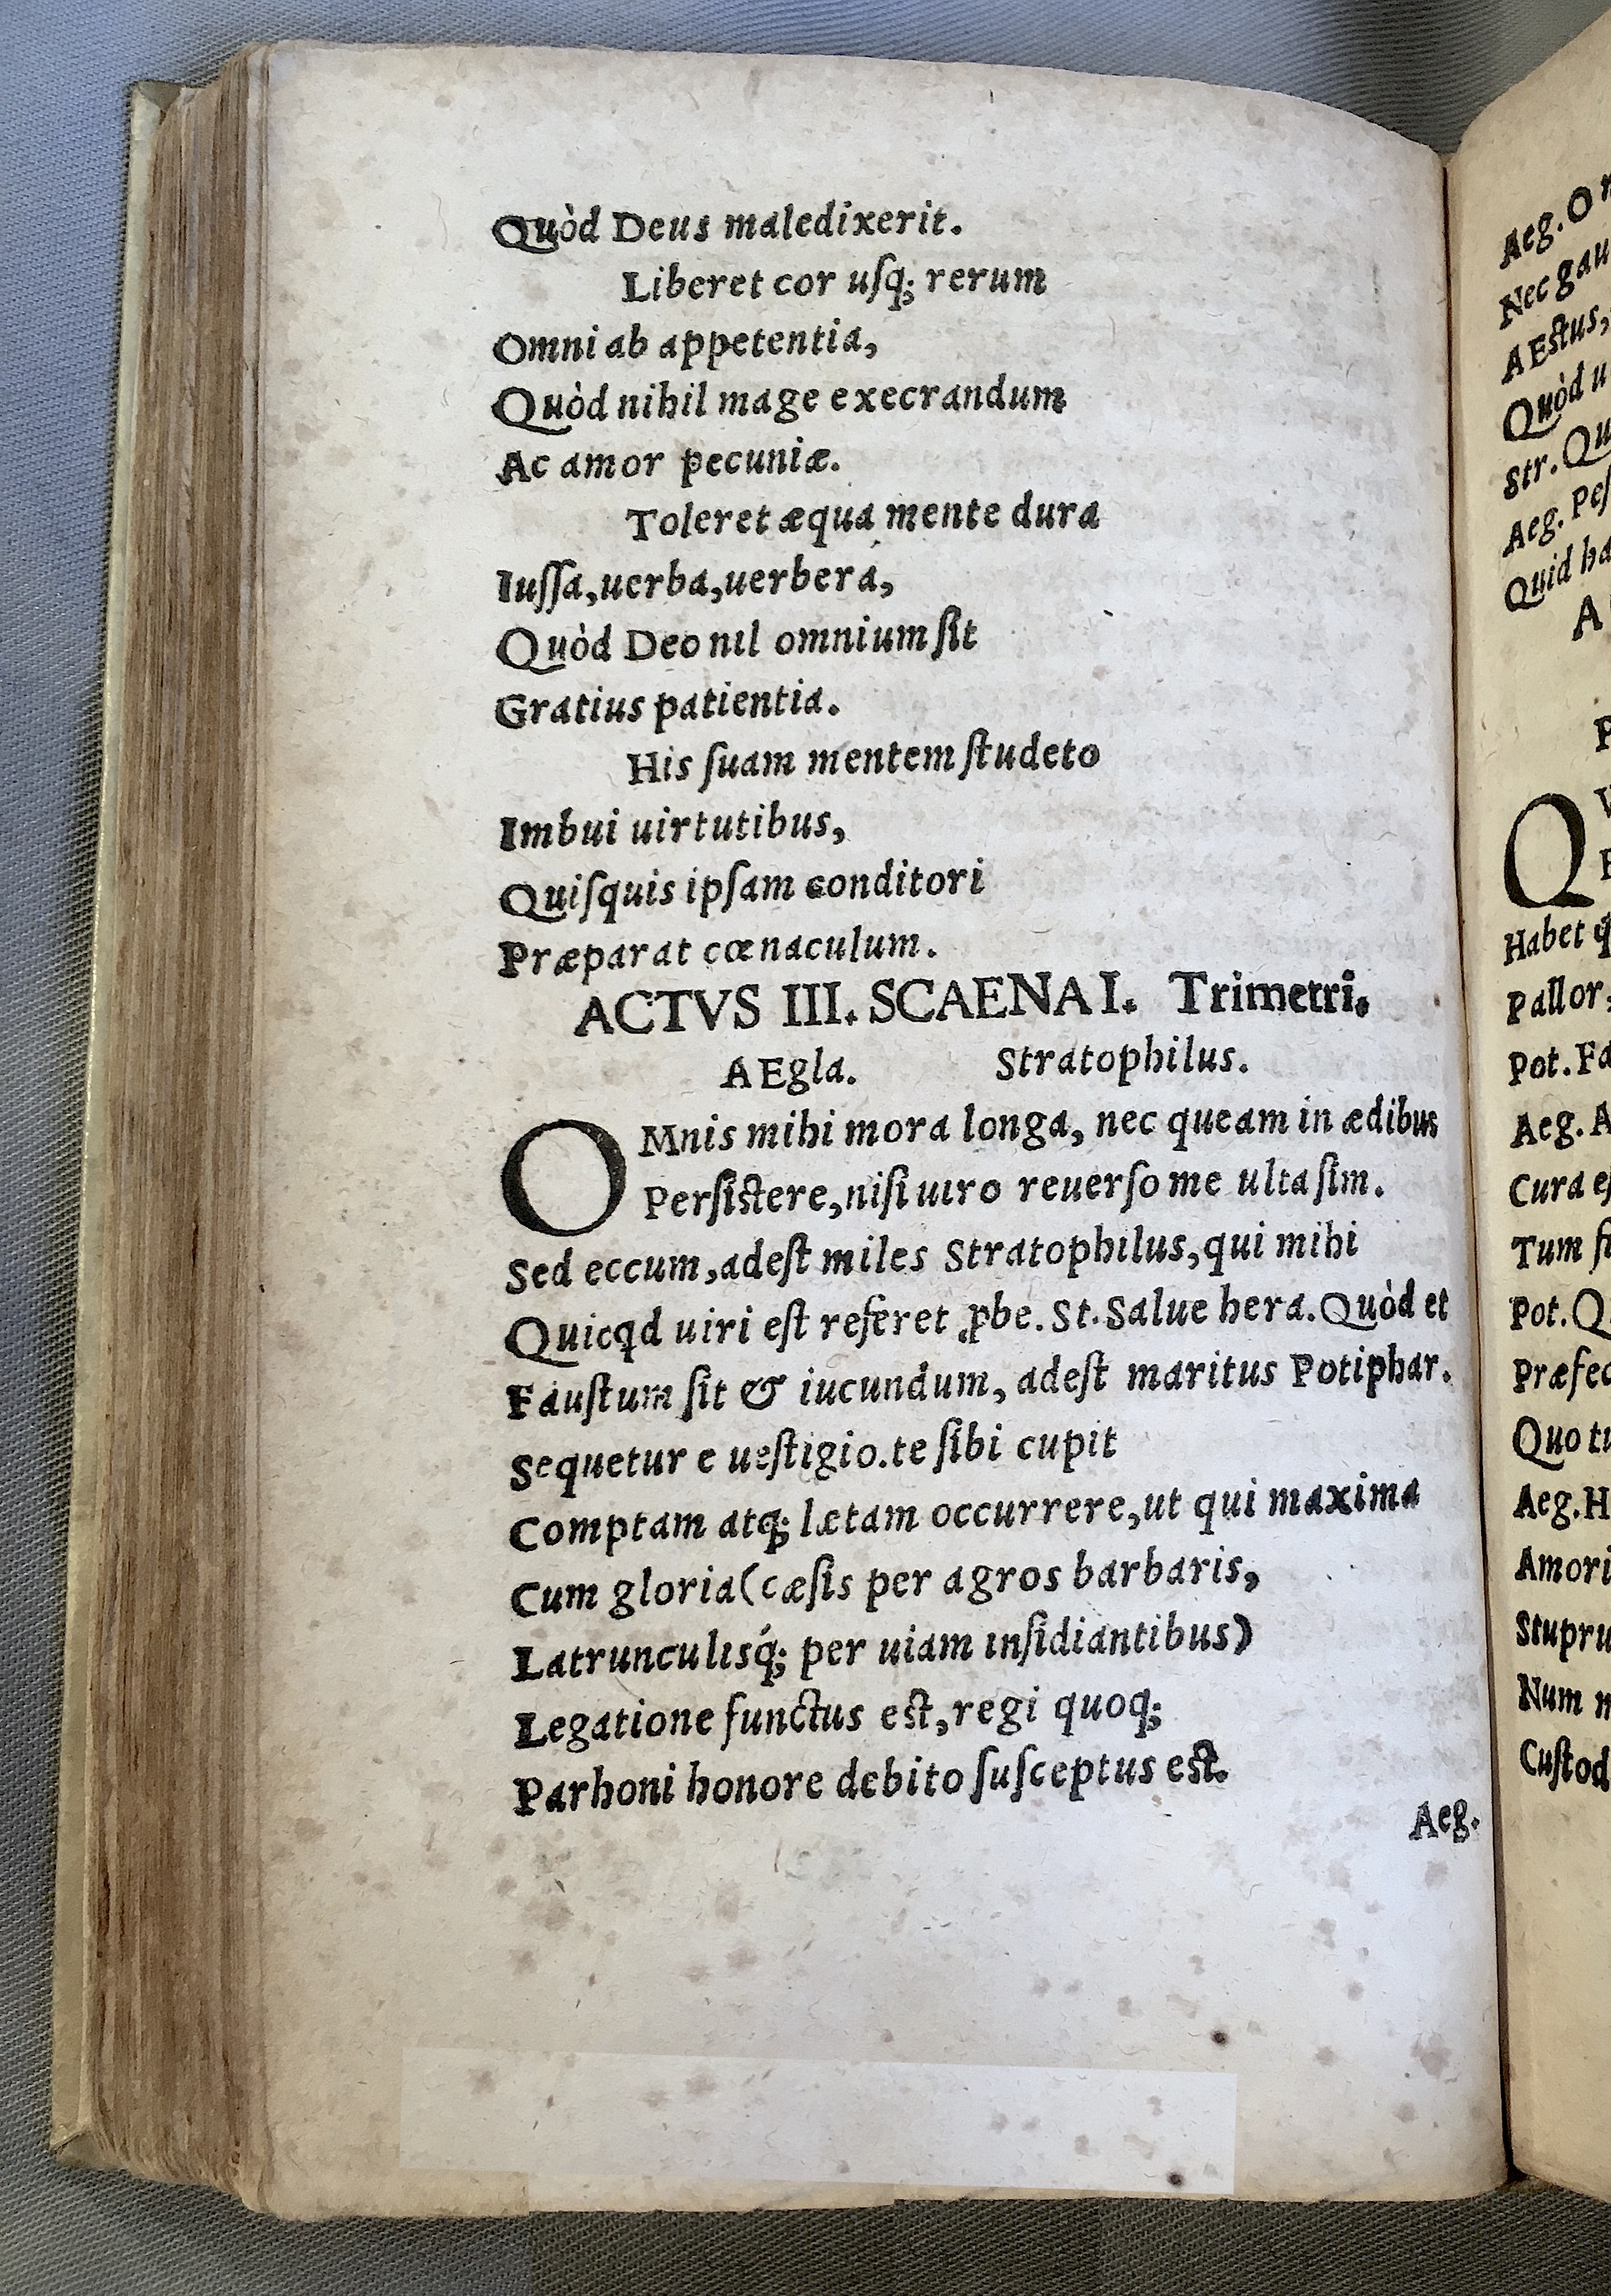 Quòd Deus maledixerit.
Liberet cor uſq; rerum
Omni ab appetentia,
Quòd nihil mage execrandum
Ac amor pecuniæ.
Toleret æqua mente dura
Iuſſa, uerba, uerbera,
Quòd Deo nil omnium ſit
Gratius patientia.
His ſuam mentem ſtudeto
Imbui uirtutibus,
Quiſquis ipſam conditori
Præparat cœnaculum.
ACTVS III. SCAENA I. Trimetri.
AEgla. Stratophilus.
OMnis mihi mora longa, nec queam in ædibus
Perſiſtere, niſi uiro reuerſo me ulta ſim.
Sed eccum, adeſt miles Stratophilus, qui mihi
Quicq̃d uiri eſt referet ꝓbe. St. Salue hera. Quòd et
Fauſtum ſit & iucundum, adeſt maritus Potiphar.
Sequetur e ueſtigio. te ſibi cupit
Comptam atq; lætam occurrere, ut qui maxima
Cum gloria (cæſis per agros barbaris,
Latrunculisq́; per uiam inſidiantibus)
Legatione functus eſt, regi quoq;
Parhoni honore debito ſuſceptus eſt.
Aeg.
Aeg. O
Nec gau
AEſtus,
Quòd u
Str. Qu
Aeg. Peſ
Quid ha
A
P
Q
Habet
Pallor,
Pot. Fa
Aeg. A
Cura eſ
Tum ſi
Pot. Q
Præfec
Quo tu
Aeg. H
Amori
Stupru
Num n
Cuſtod